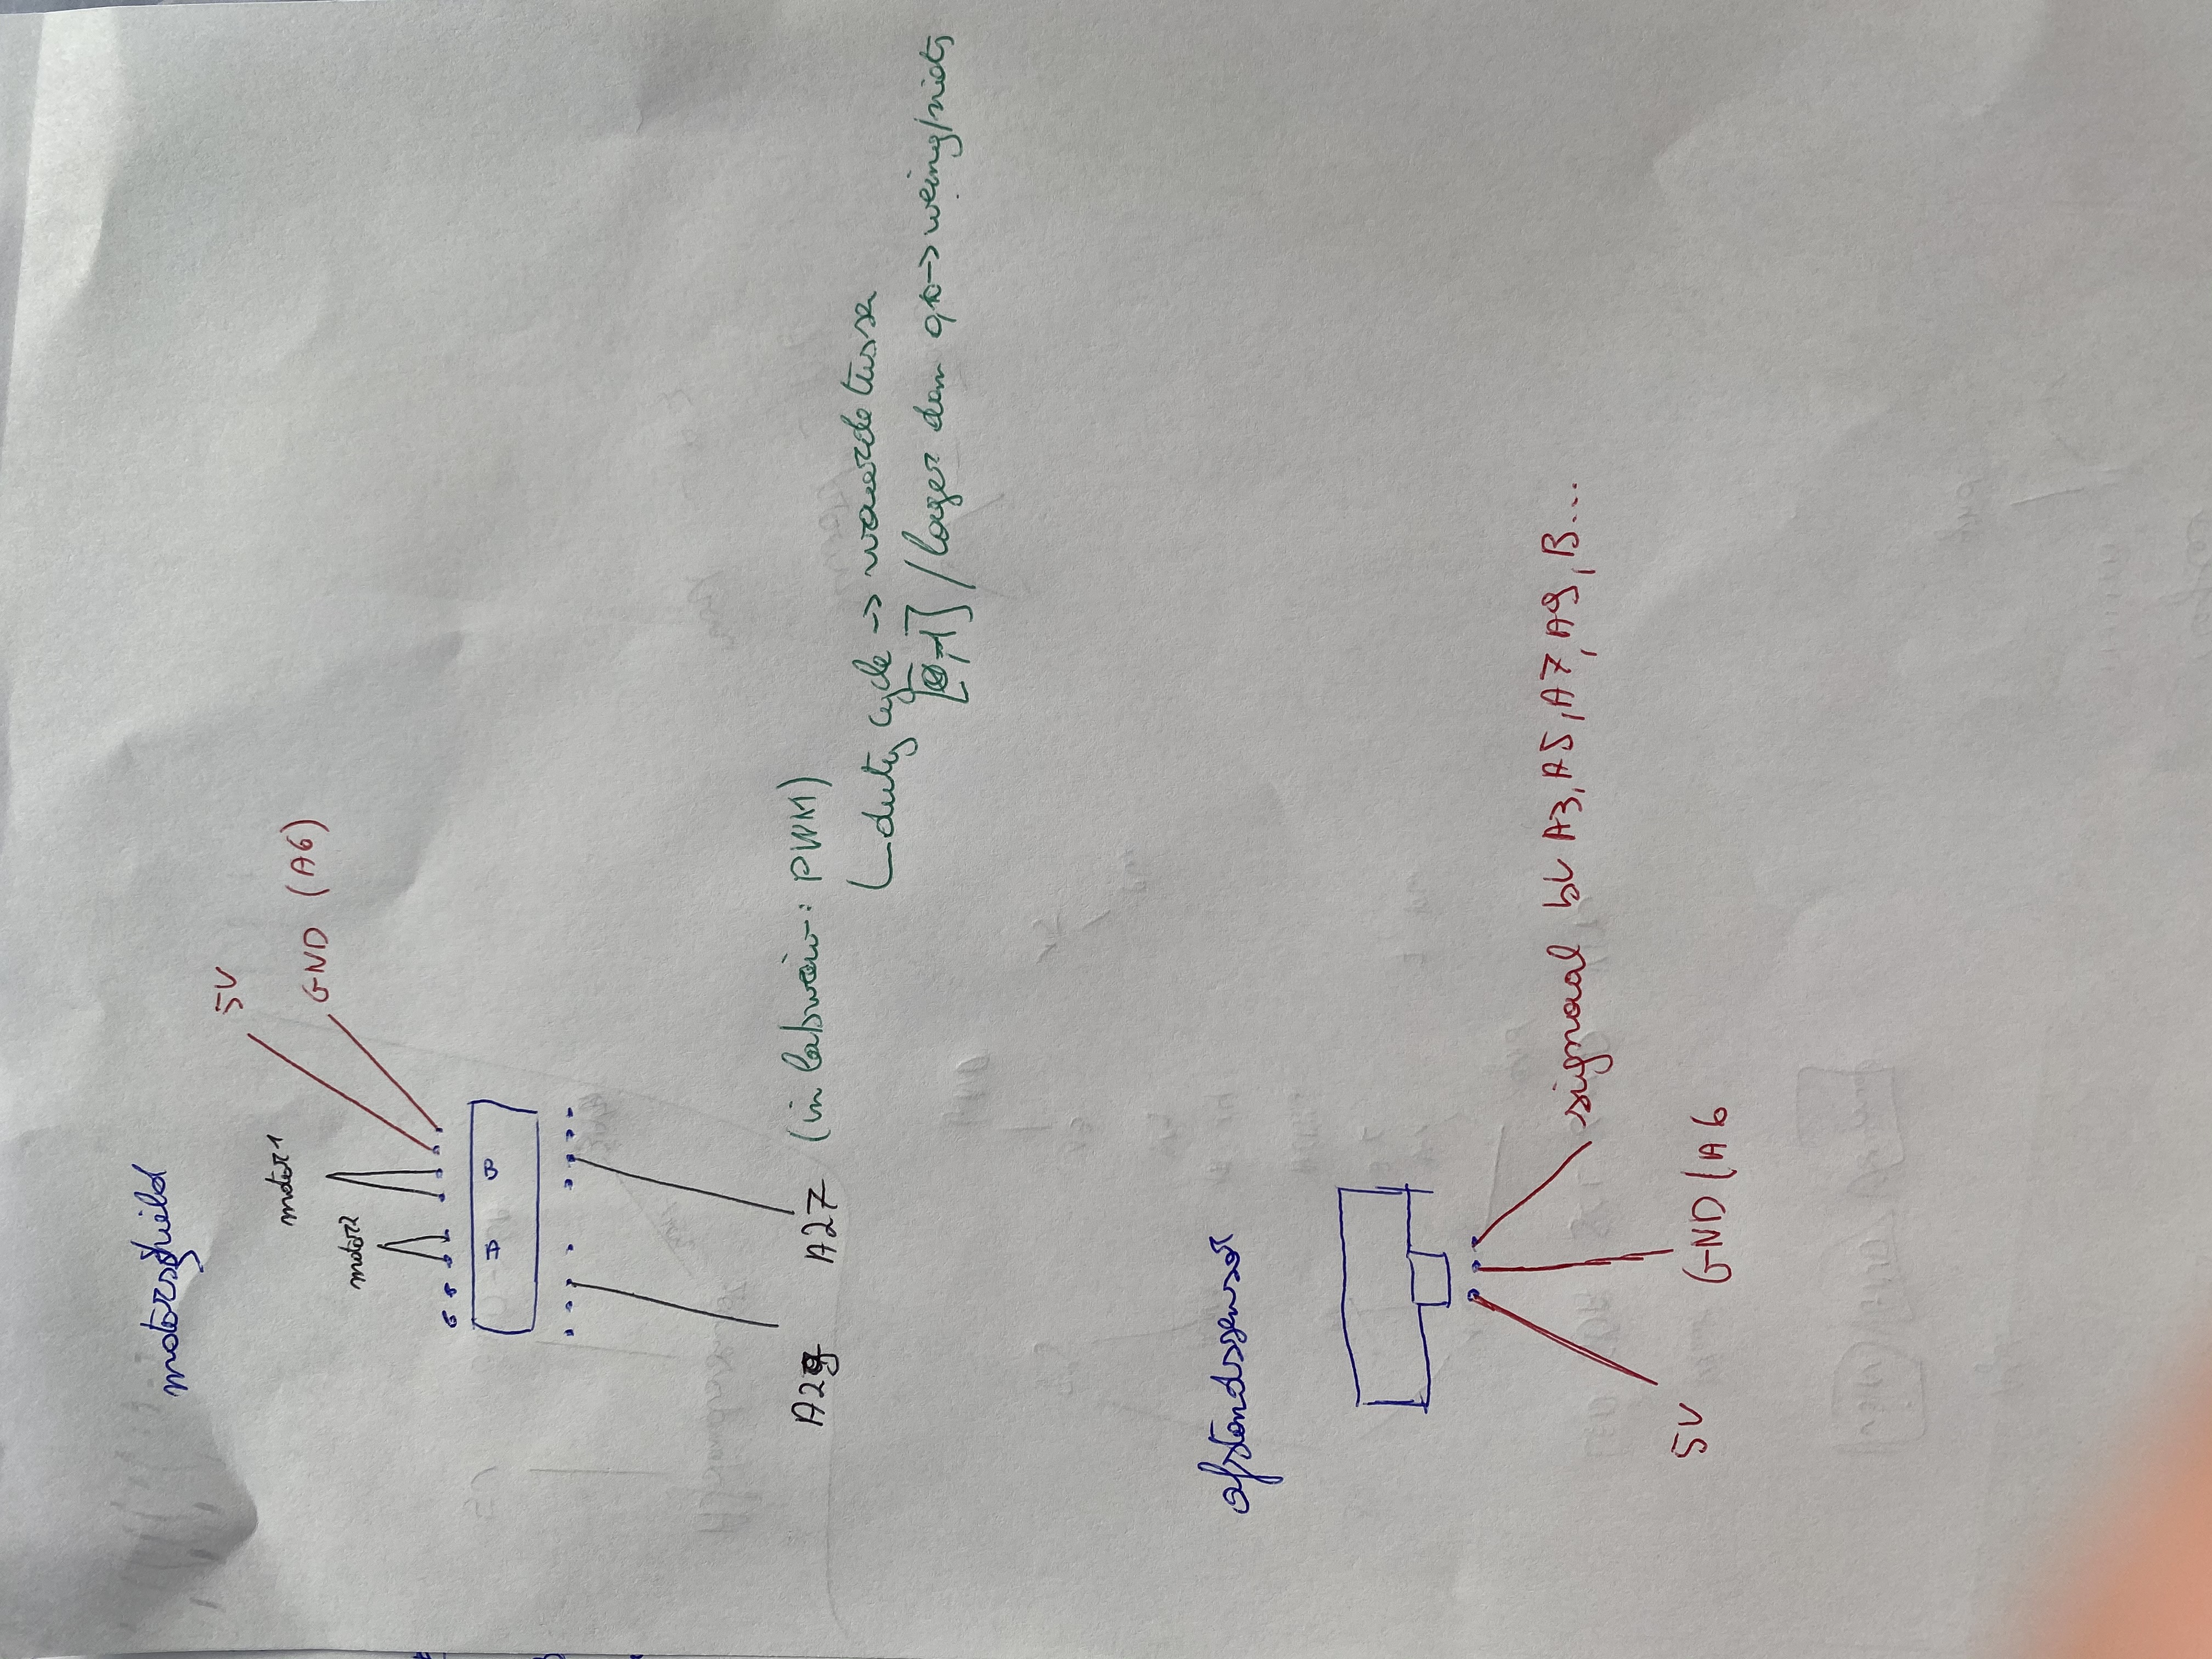 motorshield
5V
motor1
GND (A6)
motor2
A B
A29 A27 (in labweiv: PWM)
duty cycle → waarde tussen
[0,1] / lager dan → weinig/niets
afstandssensor
signaal bv A3, A5, A7, A9, B...
5V
GND (A6